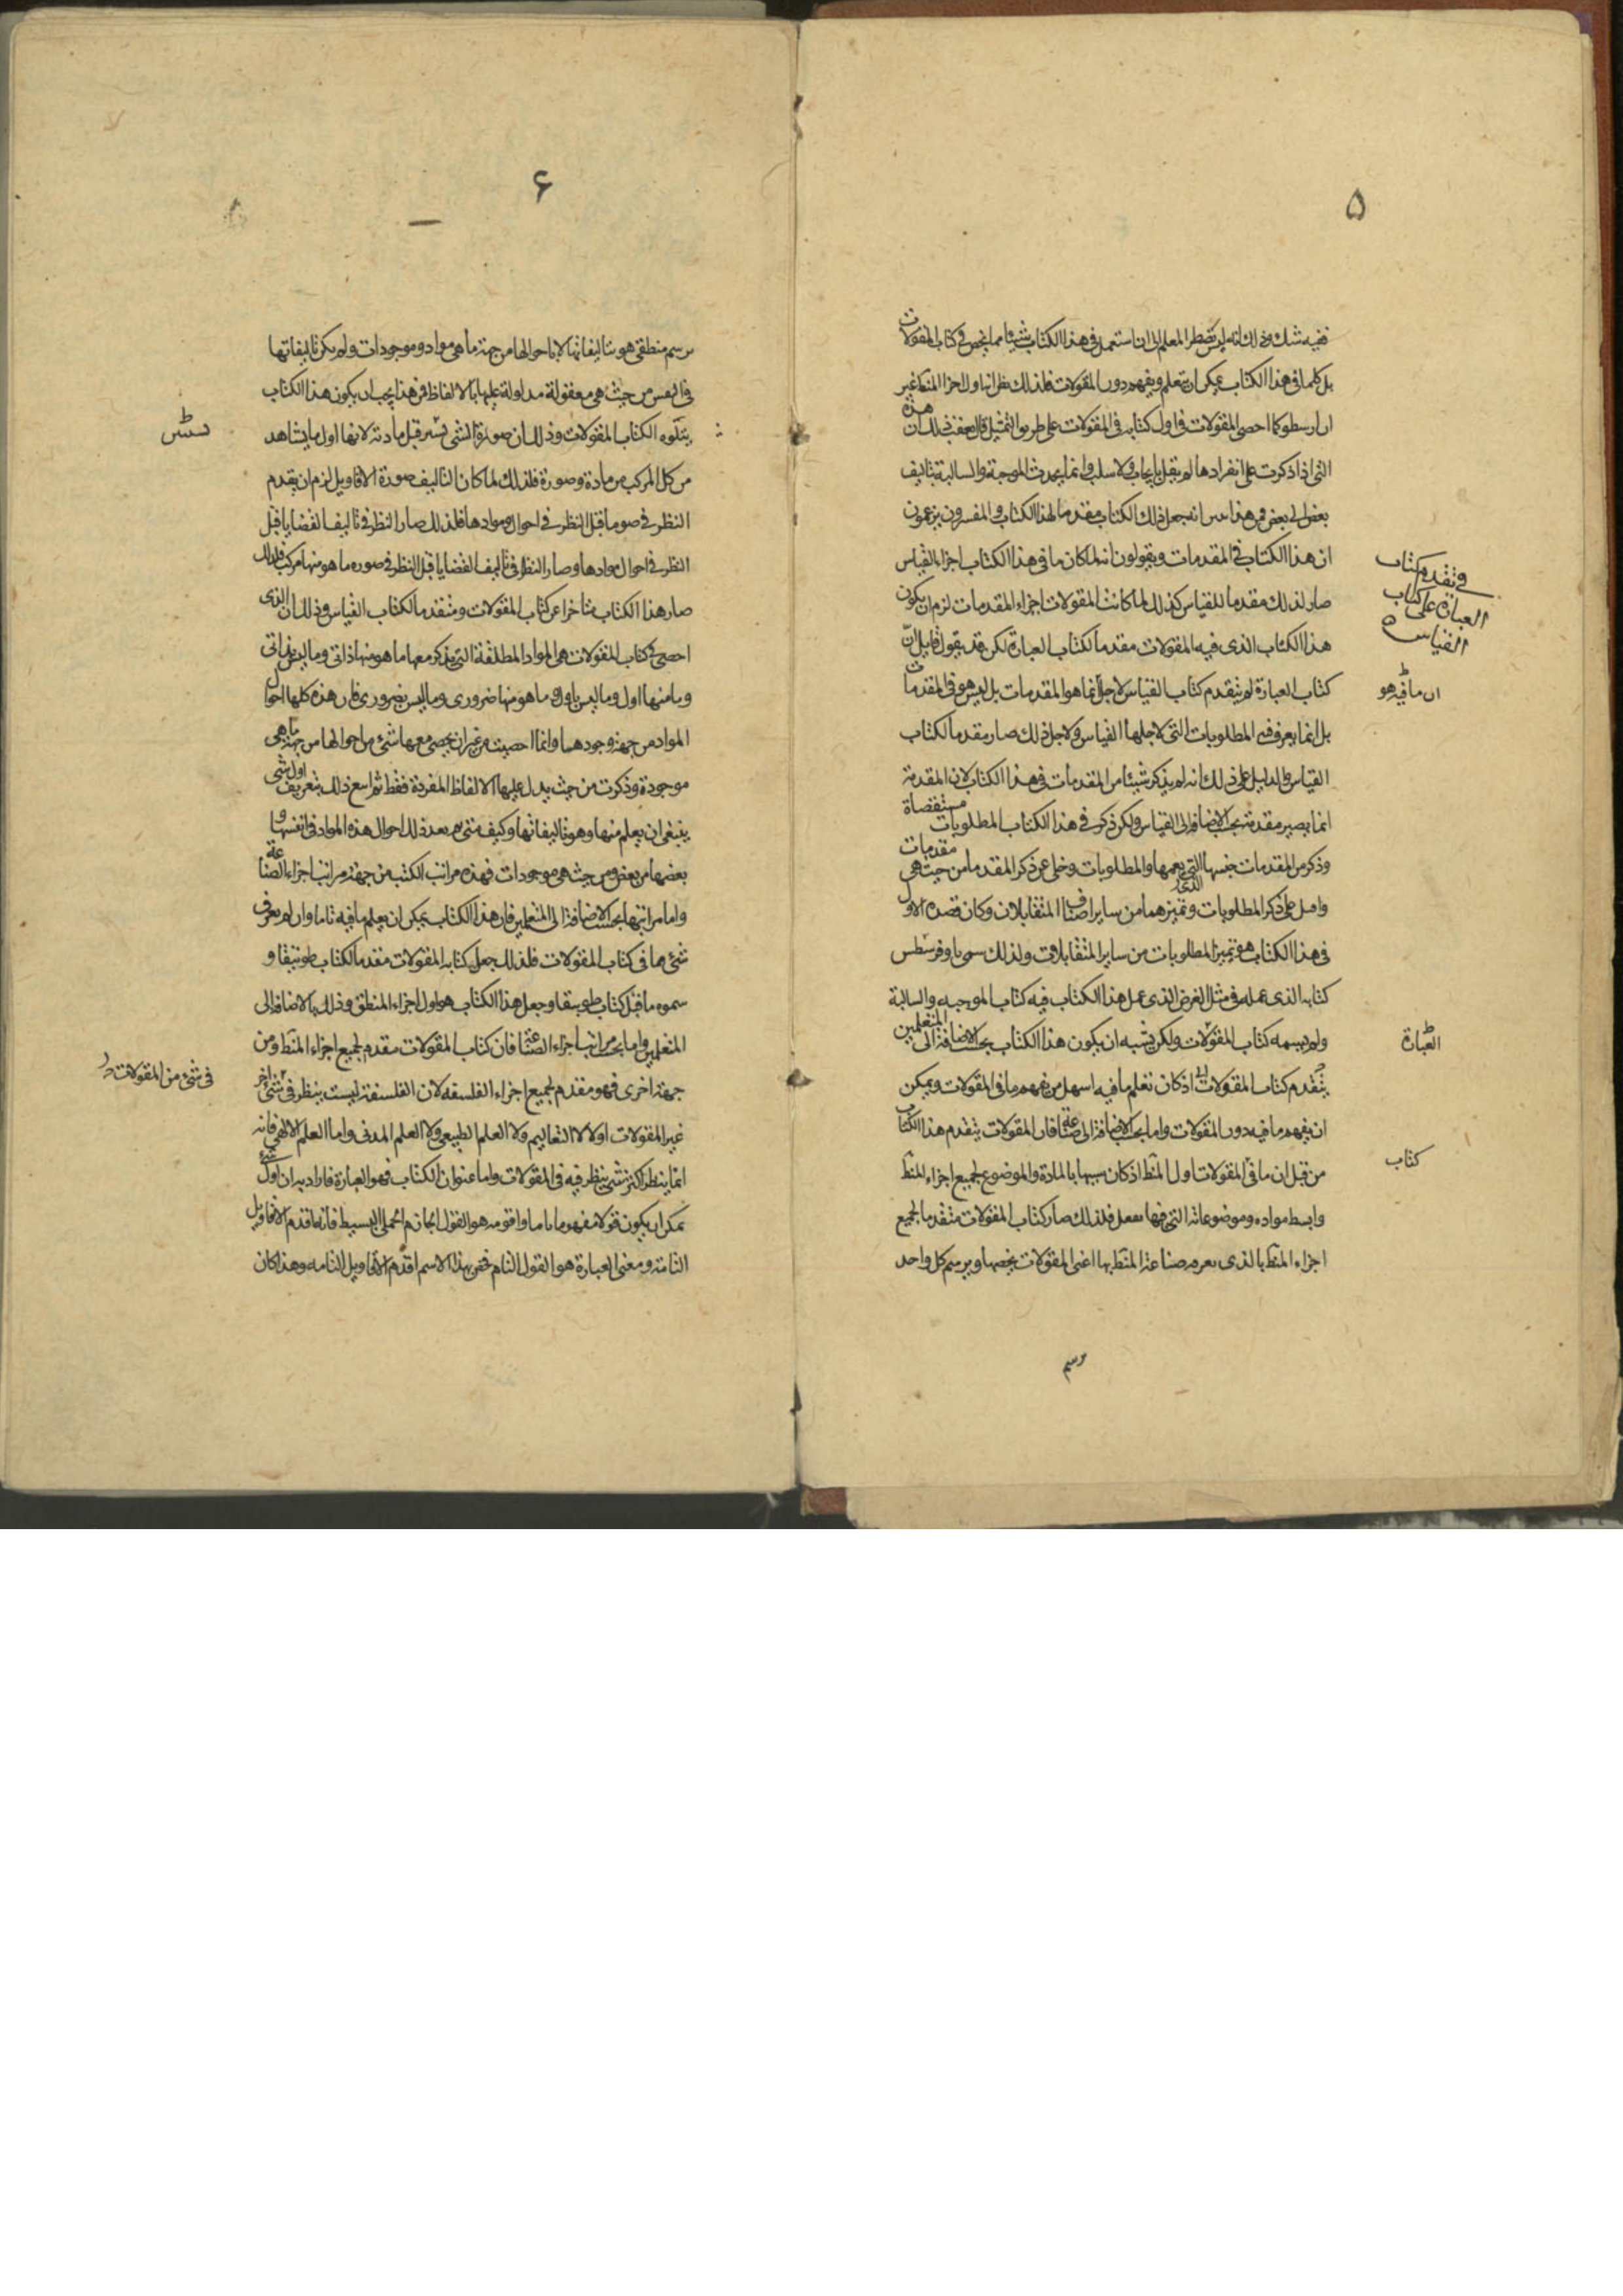 ۵
ففيه شك وذلك انه ليس يضطر المعلم الى ان استعمل فى هذا الكتاب شيئا مما يخص فى كتاب المقولات
بل كلما فى هذا الكتاب يمكن ان يتعلم ويفهم دون المقولات فلذلك نظر انها اول اجزا المنطق غير
ان ارسطو كما احصى المقولات فى اول كتابه فى المقولات على طريق التمثيل قال بعقب ذلك ان هذه
التى اذا ذكرت على انفرادها لم يقل بايجاب ولا سلب وانما يحدث الموجبة والسالبة بتاليف
بعض الى بعض فمن هذا انه جعل ذلك الكتاب مقدما لهذا الكتاب والمفسرون يزعمون
ان هذا الكتاب فى المقدمات ويقولون انه لما كان ما فى هذا الكتاب اجزاء القياس
صار لذلك مقدما للقياس كذلك لما كانت المقولات اجزاء المقدمات لزم ان يكون
هذا الكتاب الذى فيه المقولات مقدما لكتاب العبارة لكن قد يقول قايل ان
كتاب العبارة لم يتقدم كتاب القياس لاجل انما هو المقدمات بل ليس هو فى المقدمات
بل انما يعرف فيه المطلوبات التى لاجلها القياس ولاجل ذلك صار مقدما لكتاب
القياس والدليل على ذلك انه لم يذكر شيئا من المقدمات فى هذا الكتاب لان المقدمة
انما يصير مقدمة بحسب الاضافة الى القياس ولكن ذكر فى هذا الكتاب المطلوبات مستقصاة
وذكر من المقدمات جنسها الذى يعمها والمطلوبات وخلى عن ذكر المقدمات من حيث هى مقدمات
واصل على ذكر المطلوبات وتميزهما من ساير اصناف المتقابلات وكان قصده الاول
فى هذا الكتاب هو تميز المطلوبات من ساير المتقابلات ولذلك سمى ثاوفرسطس
كتابه الذى عمله فى مثل الغرض الذى عمل هذا الكتاب فيه كتاب الموجبه والسالبة
ولم يسمه كتاب المقولات ولكن يشبه ان يكون هذا الكتاب بحسب الاضافة الى المتعلمين
يتقدم كتاب المقولات اذ كان تعلم ما فيه اسهل من تفهم ما فى المقولات ويمكن
ان يفهم ما فيه دون المقولات واما بحسب الاضافة الى الصناعة فان المقولات يتقدم هذا الكتاب
من قبل ان ما فى المقولات اول المنطق اذ كان سبيها بالمادة والموضوع لجميع اجزاء المنطق
وابسط مواده وموضوعاته التى فيها فلذلك صار كتاب المقولات متقدما لجميع
اجزاء المنطق بالذى صناعة المنطق بها اعنى المقولات يخصها ويرسم كل واحد
رسم
فى تقدم كتاب
العبارة على كتاب
القياس
ان ما فيه هو
العبارة
كتاب
۶
برسم منطقى هو بتاليفاتها لا باحوالها من جهة ما هى مواد وموجودات ولم يكن تاليفاتها
فى النفس من حيث هى معقولة مدلولة عليها بالالفاظ فمن هذا يجب ان يكون هذا الكتاب
يتلوه الكتاب المقولات وذلك ان صورة الشى قبل مادته لانها اول ما يشاهد
من كل المركب من مادة وصورة فلذلك لما كان التاليف صورة الاقاويل لزم ان يقدم
النظر فى صورها قبل النظر فى احوال موادها فلذلك صار النظر فى تاليف القضايا قبل
النظر فى احوال موادها وصار النظر فى تاليف القضايا قبل النظر فى صوره ما هو منها مركب فلذلك
صار هذا الكتاب متاخرا عن كتاب المقولات ومتقدما لكتاب القياس وذلك ان الذى
احصى فى كتاب المقولات هى المواد المطلقة التى يذكر معها ما هو منها ذاتى وما ليس بذاتى
وما منها اول وما ليس باول وما هو منها ضرورى وما ليس بضرورى فان هذه كلها احوال
المواد من جهة وجودها وانما احصيت من غير ان يحصى معها شئ من احوالها من جهة ما هى
موجودة وذكرت من حيث يدل عليها الالفاظ المفردة فقط ثم اتبع ذلك بتعريف اول شى
ينبغى ان يعلم منها وهو تاليفاتها وكيف هى ثم بعد ذلك احوال هذه المواد فى انفسها و
بعضها من بعض من حيث هى موجودات فهذه مراتب الكتب من جهة مراتب اجزاء الصناعة
واما مراتبها بحسب الاضافة الى المتعلمين فان هذا الكتاب يمكن ان يعلم ما فيه تاما وان لم يعرف
شئ مما فى كتاب المقولات فلذلك جعل كتابه المقولات مقدما لكتاب طوبيقا و
سموه ما قبل كتاب طوبيقا وجعل هذا الكتاب هو اول اجزاء المنطق وذلك بالاضافة الى
المتعلمين واما بحسب مراتب اجزاء الصناعة فان كتاب المقولات مقدم لجميع اجزاء المنطق ومن
جهة اخرى فهو مقدم لجميع اجزاء الفلسفه لان الفلسفة ليست ينظر فى شئ اخر
غير المقولات اولا لا التعاليم ولا العلم الطبيعى ولا العلم المدنى واما العلم الالهى فانه
انما ينظر اكثر شى ينظر فيه فى المقولات واما عنوان الكتاب فهو العبارة فاراد به ان اول شئ
يمكن ان يكون قولا مفهوما تاما واقومه هو القول الجازم الحملى البسيط فانه اقدم الاقاويل
التامة ومعنى العبارة هو القول التام فخص بهذا الاسم اقدم الاقاويل التامه وهذا كان
فى شئ من المقولات